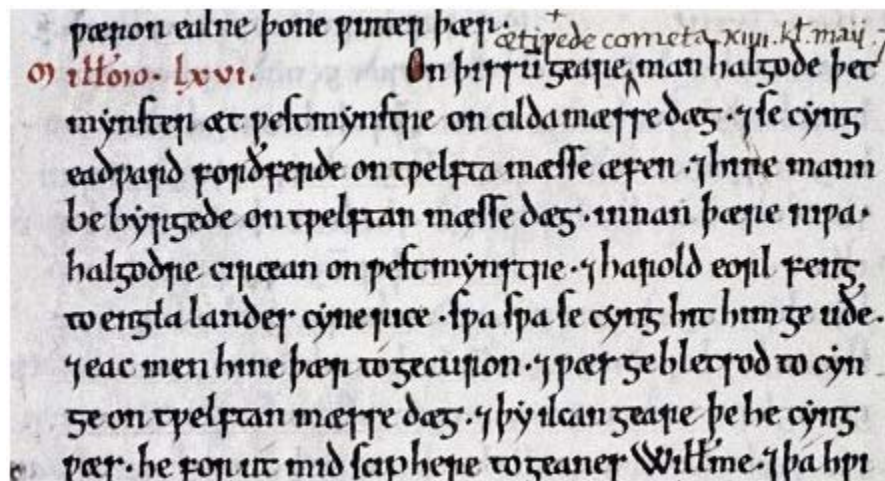 ƿæron ealne þone ƿinter þær·
ætiƿede cometa xiiii. kł. maii. ⁊
Millesimo· lxvi. On þissu geare man halgode þet
mynster æt ƿestmynstre on cilda mæsse dæg· ⁊ se cyng
eadƿard forðferde on tƿelfta mæsse æfen· ⁊ hine mann
be byrgede on tƿelftan mæsse dæg· innan þære niƿa·
halgodre circean on ƿestmynstre· ⁊ harold eorl feng
to engla landes cyne rice· sƿa sƿa se cyng hit him ge uðe·
⁊ eac men hine þær to gecuron· ⁊ ƿæs gebletsod to cyn
ge on tƿelftan mæsse dæg· ⁊ þy ilcan geare þe he cyng
ƿæs· he for ut mid sciphere to geanes Willme· ⁊ þa hƿi